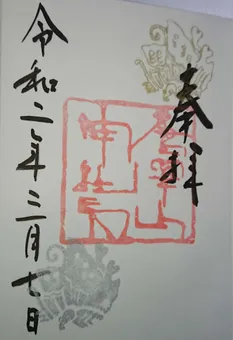 奉拝
令和二年三月七日